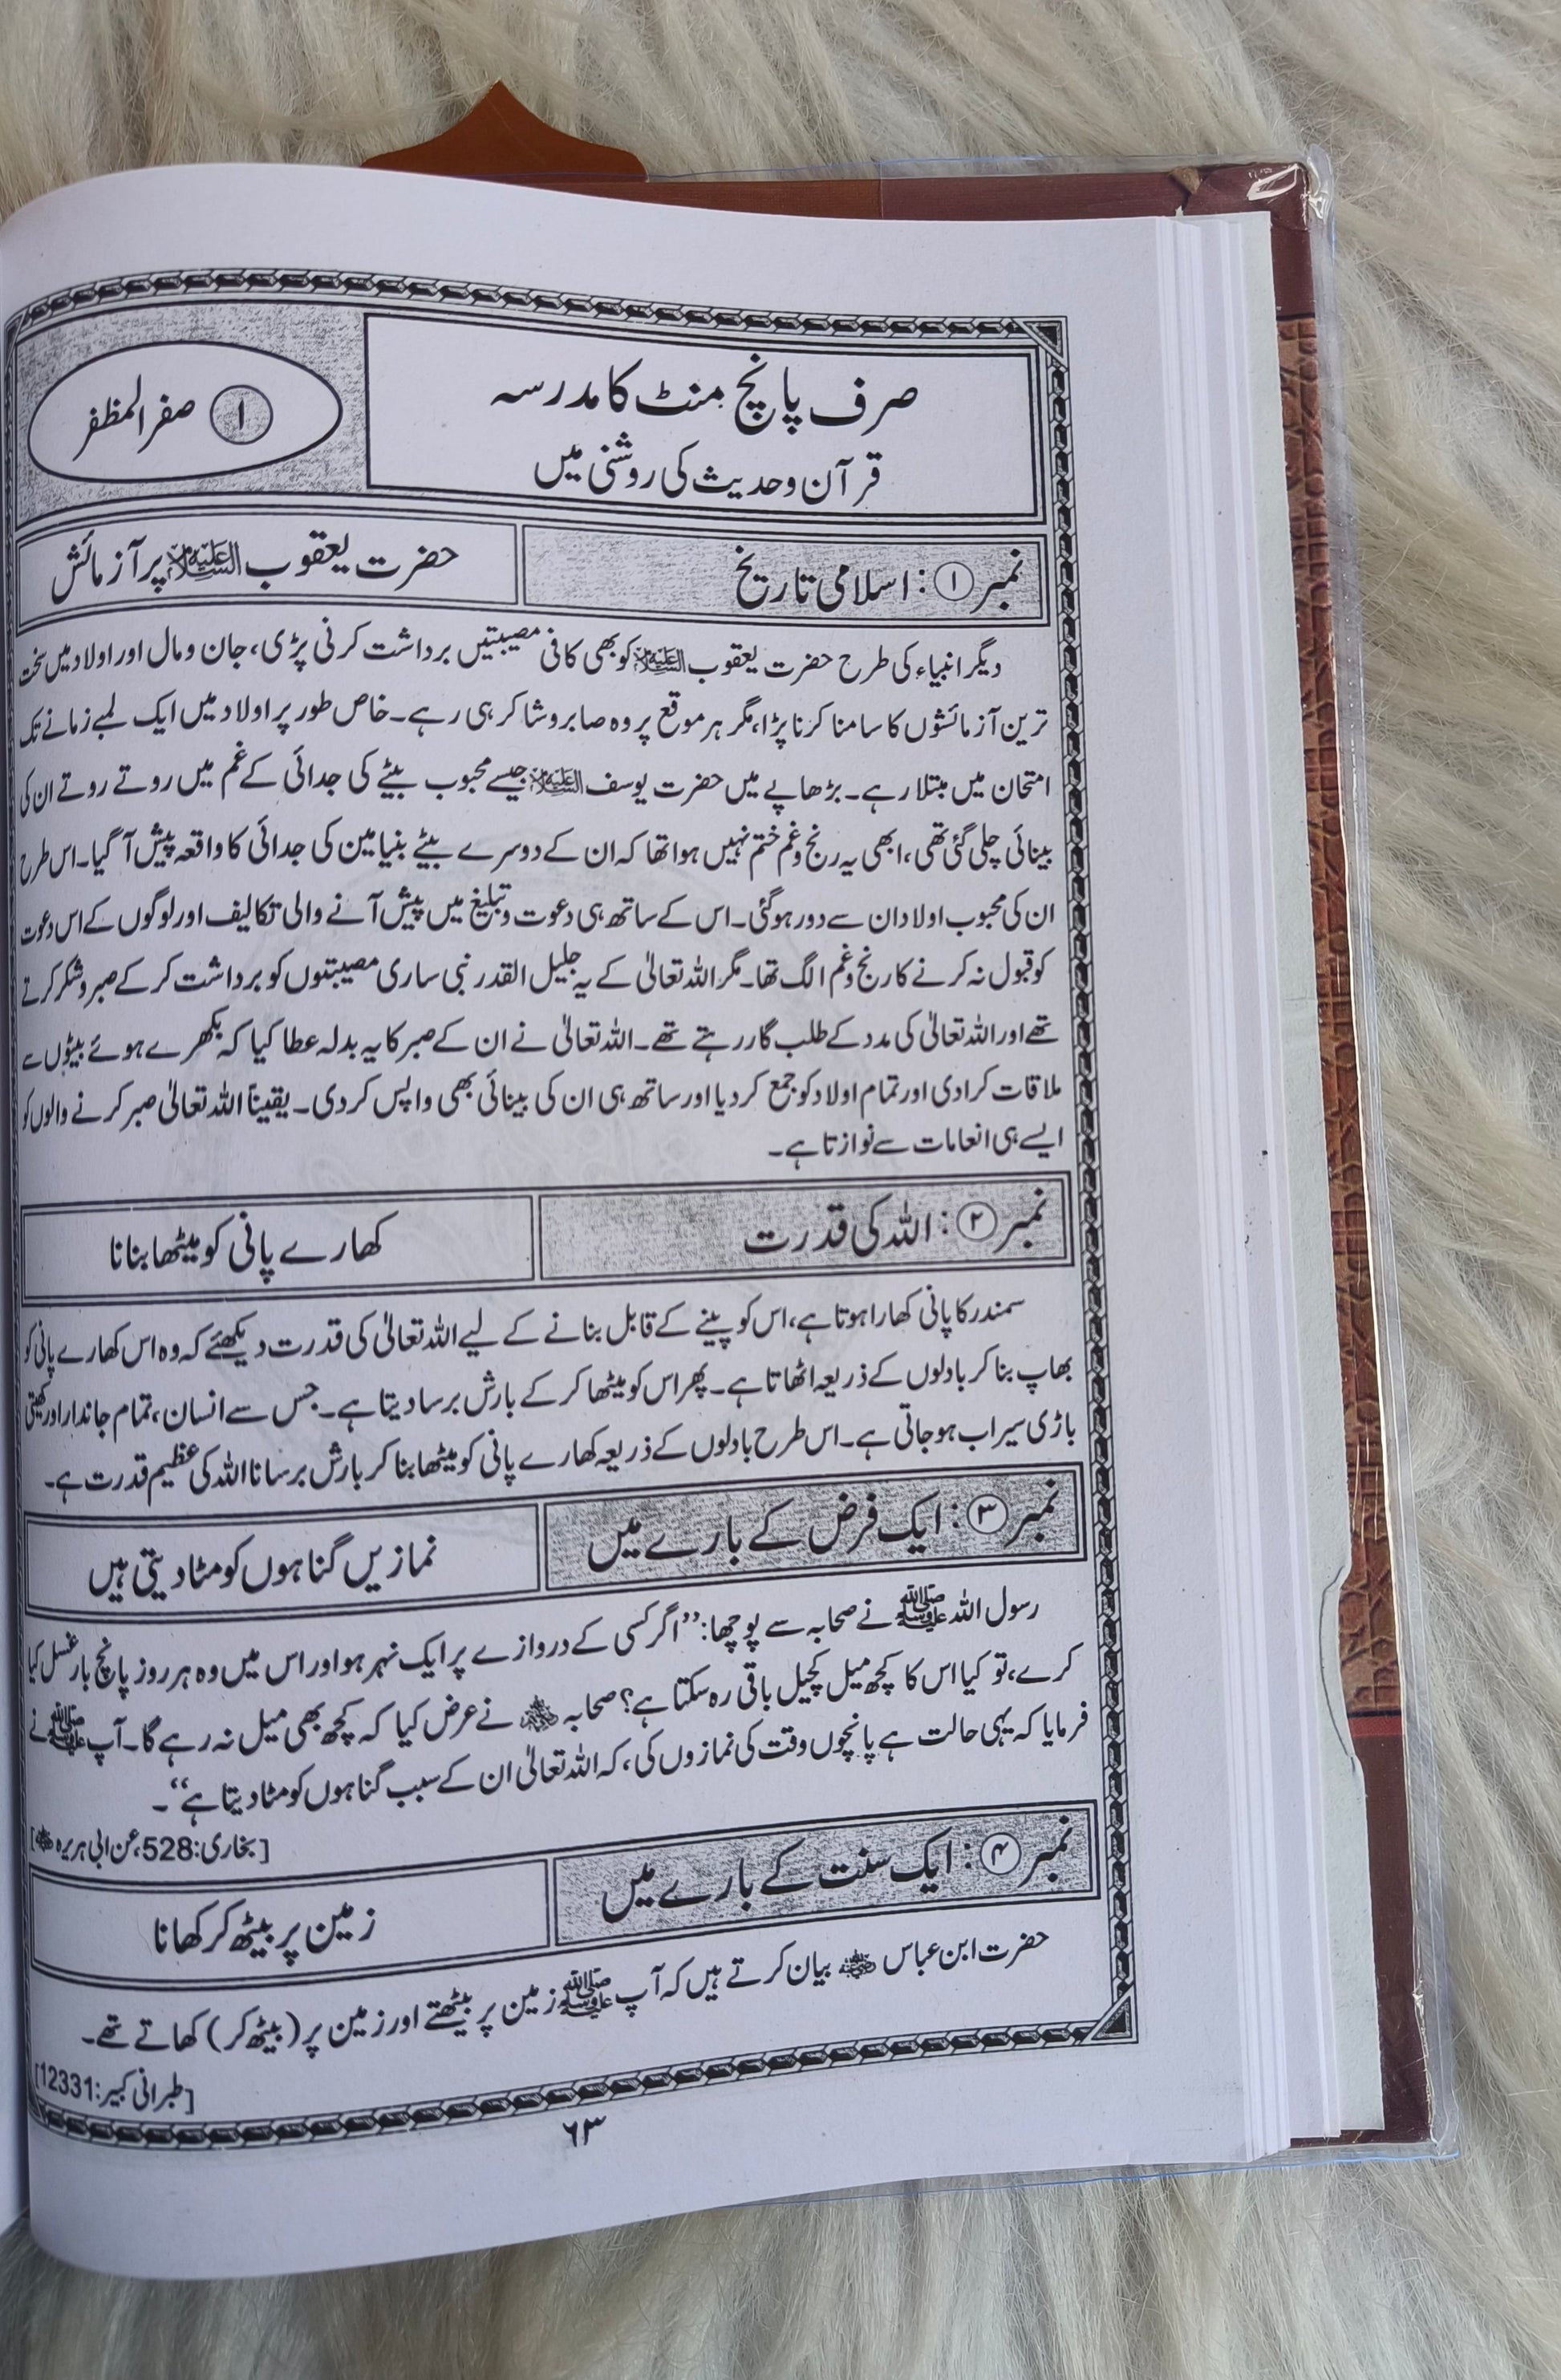 صرف پانچ منٹ کا مدرسہ
قرآن و حدیث کی روشنی میں
۱ صفر المظفر
نمبر ۱ : اسلامی تاریخ
حضرت یعقوب علیہ السلام پر آزمائش
دیگر انبیاء کی طرح حضرت یعقوب علیہ السلام کو بھی کافی مصیبتیں برداشت کرنی پڑی، جان و مال اور اولاد میں سخت
ترین آزمائشوں کا سامنا کرنا پڑا، مگر ہر موقع پر وہ صابر و شاکر ہی رہے۔ خاص طور پر اولاد میں ایک لمبے زمانے تک
امتحان میں مبتلا رہے۔ بڑھاپے میں حضرت یوسف علیہ السلام جیسے محبوب بیٹے کی جدائی کے غم میں روتے روتے ان کی
بینائی چلی گئی تھی، ابھی یہ رنج و غم ختم نہیں ہوا تھا کہ ان کے دوسرے بیٹے بنیامین کی جدائی کا واقعہ پیش آ گیا۔ اس طرح
ان کی محبوب اولاد ان سے دور ہوگئی۔ اس کے ساتھ ہی دعوت و تبلیغ میں پیش آنے والی تکالیف اور لوگوں کے اس دعوت
کو قبول نہ کرنے کا رنج و غم الگ تھا۔ مگر اللہ تعالیٰ کے یہ جلیل القدر نبی ساری مصیبتوں کو برداشت کر کے صبر و شکر کرتے
تھے اور اللہ تعالیٰ کی مدد کے طلب گار رہتے تھے۔ اللہ تعالیٰ نے ان کے صبر کا یہ بدلہ عطا کیا کہ بکھرے ہوئے بیٹوں سے
ملاقات کرا دی اور تمام اولاد کو جمع کر دیا اور ساتھ ہی ان کی بینائی بھی واپس کر دی۔ یقیناً اللہ تعالیٰ صبر کرنے والوں کو
ایسے ہی انعامات سے نوازتا ہے۔
نمبر ۲ : اللہ کی قدرت
کھارے پانی کو میٹھا بنانا
سمندر کا پانی کھارا ہوتا ہے، اس کو پینے کے قابل بنانے کے لیے اللہ تعالیٰ کی قدرت دیکھئے کہ وہ اس کھارے پانی کو
بھاپ بنا کر بادلوں کے ذریعہ اٹھاتا ہے۔ پھر اس کو میٹھا کر کے بارش برسا دیتا ہے۔ جس سے انسان، تمام جاندار اور کھیتی
باڑی سیراب ہوجاتی ہے۔ اس طرح بادلوں کے ذریعہ کھارے پانی کو میٹھا بنا کر بارش برسانا اللہ کی عظیم قدرت ہے۔
نمبر ۳ : ایک فرض کے بارے میں
نمازیں گناہوں کو مٹا دیتی ہیں
رسول اللہ ﷺ نے صحابہ سے پوچھا: ”اگر کسی کے دروازے پر ایک نہر ہو اور اس میں وہ ہر روز پانچ بار غسل کیا
کرے، تو کیا اس کا کچھ میل کچیل باقی رہ سکتا ہے؟ صحابہ رضی اللہ عنہم نے عرض کیا کہ کچھ بھی میل نہ رہے گا۔ آپ ﷺ نے
فرمایا کہ یہی حالت ہے پانچوں وقت کی نمازوں کی، کہ اللہ تعالیٰ ان کے سبب گناہوں کو مٹا دیتا ہے“۔
[بخاری: 528، عن ابی ہریرہ رضی اللہ عنہ]
نمبر ۴ : ایک سنت کے بارے میں
زمین پر بیٹھ کر کھانا
حضرت ابن عباس رضی اللہ عنہ بیان کرتے ہیں کہ آپ ﷺ زمین پر بیٹھتے اور زمین پر (بیٹھ کر) کھاتے تھے۔
[طبرانی کبیر: 12331]
۶۳